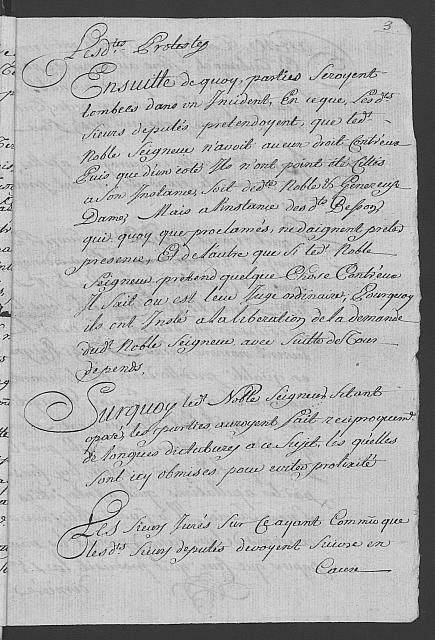 3
Lesd:ts Protestes
Ensuitte de quoy, parties seroyent
tombées dans un Incident, En ce que, Lesd:ts
Sieurs deputés pretendoyent, que led:t
Noble Seigneur n'avoit aucun droit Contreux
Puis que d'un coté Ils n'ont point été Cittés
a son Instance, soit de d:te Noble & Genereuse
Dame, Mais a l'instance desd:ts Besson,
qui quoy que proclamés, ne daignent preter
presence, Et de l'autre que si led:t Noble
Seigneur pretend quelque Chose Contreux
Il sait où est leur Juge ordinaire, Pourquoy
ils ont Insté a la liberation de la demande
dud:t Noble Seigneur, avec suitte de Tous
depends.
Surquoy led:t Noble Seigneur s'etant
oposé, les parties auroyent fait reciproquem:t
de longues dictatures a ce Sujet, les quelles
sont icy obmises pour eviter prolixité
Les Sieurs Jurés sur Ce ayant Commû que
lesd:ts Sieurs deputés devoyent suivre en
Cause